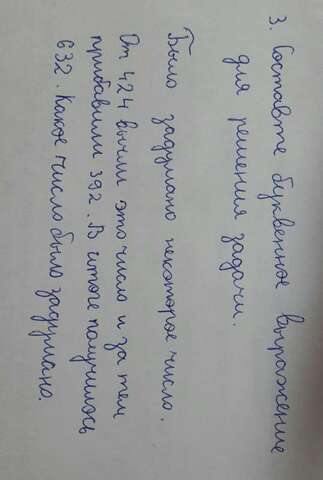 3. Составте буквенное выражение
для решения задачи.
Было задумано некоторое число.
От 424 вычли это число и за тем
прибавили 392. В итоге получилось
632. Какое число было задумано.